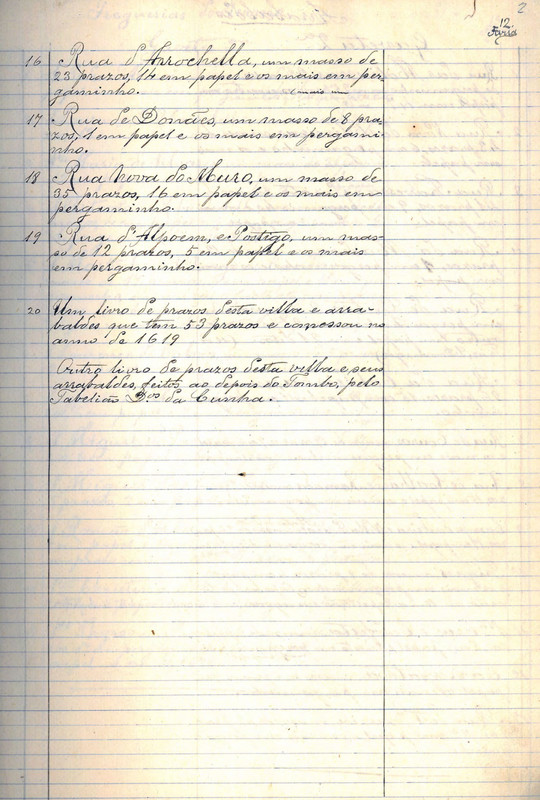 2
12.
Faria
16 Rua d'Arrochella, um masso de
23 prazos, 14 em papel e os mais em per-
gaminho.
17 Rua de Donães, um masso de 8 pra-
zos, 1 em papel e os mais em pergami-
nho.
18 Rua Nova do Muro, um masso de
35 prazos, 16 em papel e os mais em
pergaminho.
19 Rua d'Alpoem, e Postigo, um mas-
so de 12 prazos, 5 em papel e os mais
em pergaminho.
20 Um livro de prazos desta villa e arra-
baldes que tem 53 prazos e começou no
anno de 1619
Outro livro de prazos desta villa e seus
arrabaldes, feitos ao depois do Tombo, pelo
Tabelião D.os da Cunha.